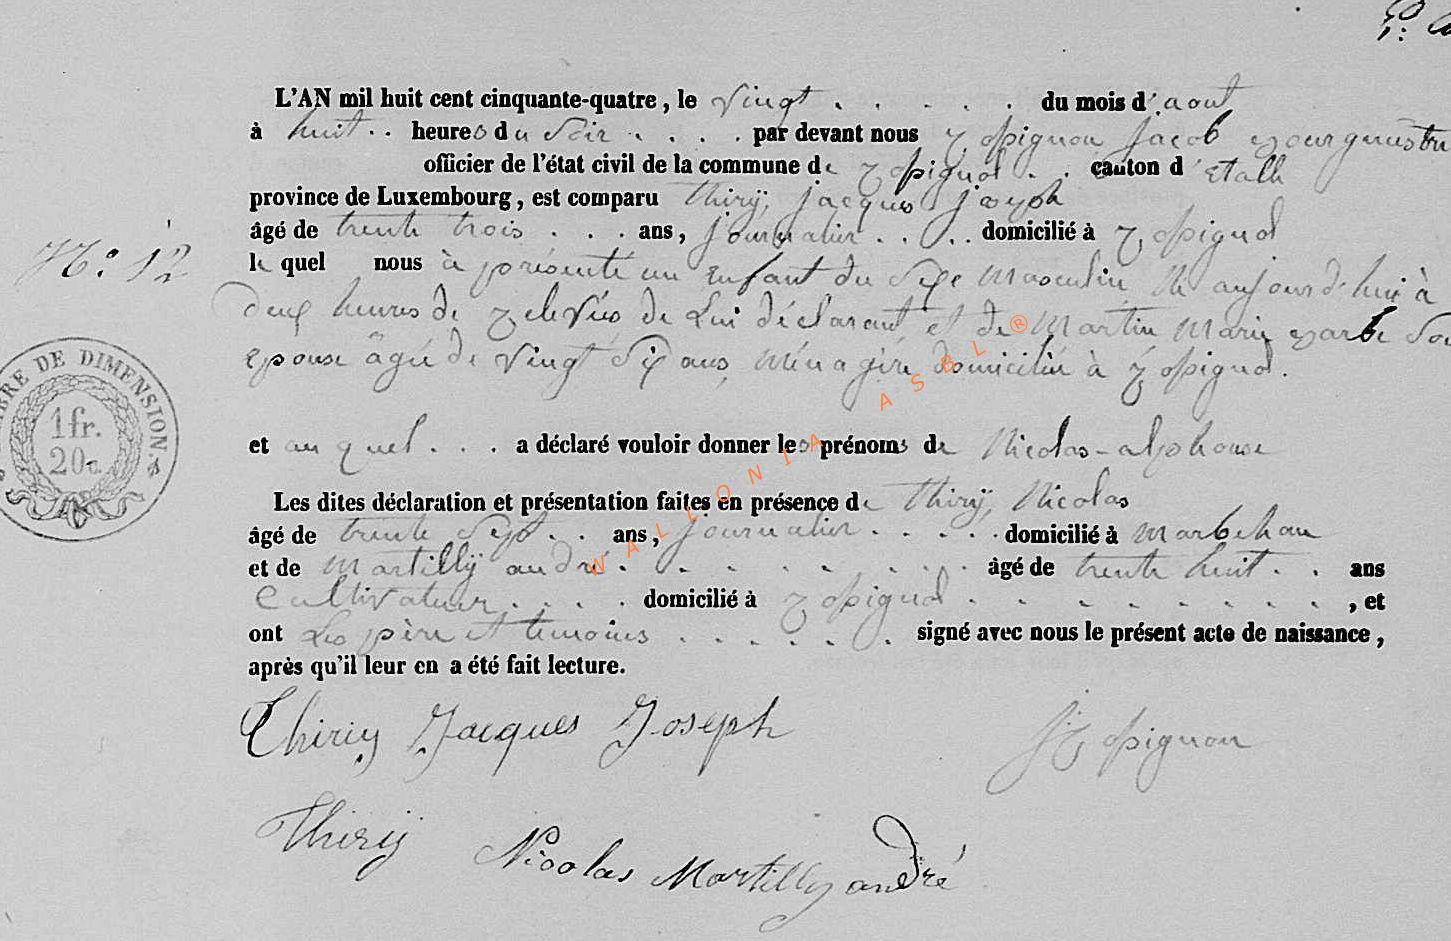 L'AN mil huit cent cinquante-quatre, le vingt . . . . . du mois d'aout
à huit . . heures du Soir . . . . par devant nous Rossignon Jacob Bourgmestre
officier de l'état civil de la commune de Rossignol . . canton d'Etalle
province de Luxembourg, est comparu Thirÿ, Jacques Joseph
âgé de trente trois . . . ans, journalier . . . . domicilié à Rossignol
le quel nous à présenté un Enfant du Sexe Masculin Né aujourd'hui à
deux heures de relevées de Lui déclarant et de Martin Marie Barbe Son
Epouse âgée de vingt Six ans, ménagère domiciliée à Rossignol.
N°. 12
TIMBRE DE DIMENSION.
1fr.
20c.
et auquel . . . a déclaré vouloir donner les prénoms de Nicolas-alphonse
Les dites déclaration et présentation faites en présence de Thirÿ, Nicolas
âgé de trente Sept . . ans, journalier . . . . . domicilié à Marbehan
et de Martillÿ andré . . . . . . . . âgé de trente huit . . ans
Cultivateur . . . . domicilié à Rossignol . . . . . . . . , et
ont Les père et temoins . . . . . signé avec nous le présent acte de naissance,
après qu'il leur en a été fait lecture.
Thiriy Jacques Joseph
J Rossignon
Thirÿ Nicolas Martilly andré
WALLONIA ASBL ®